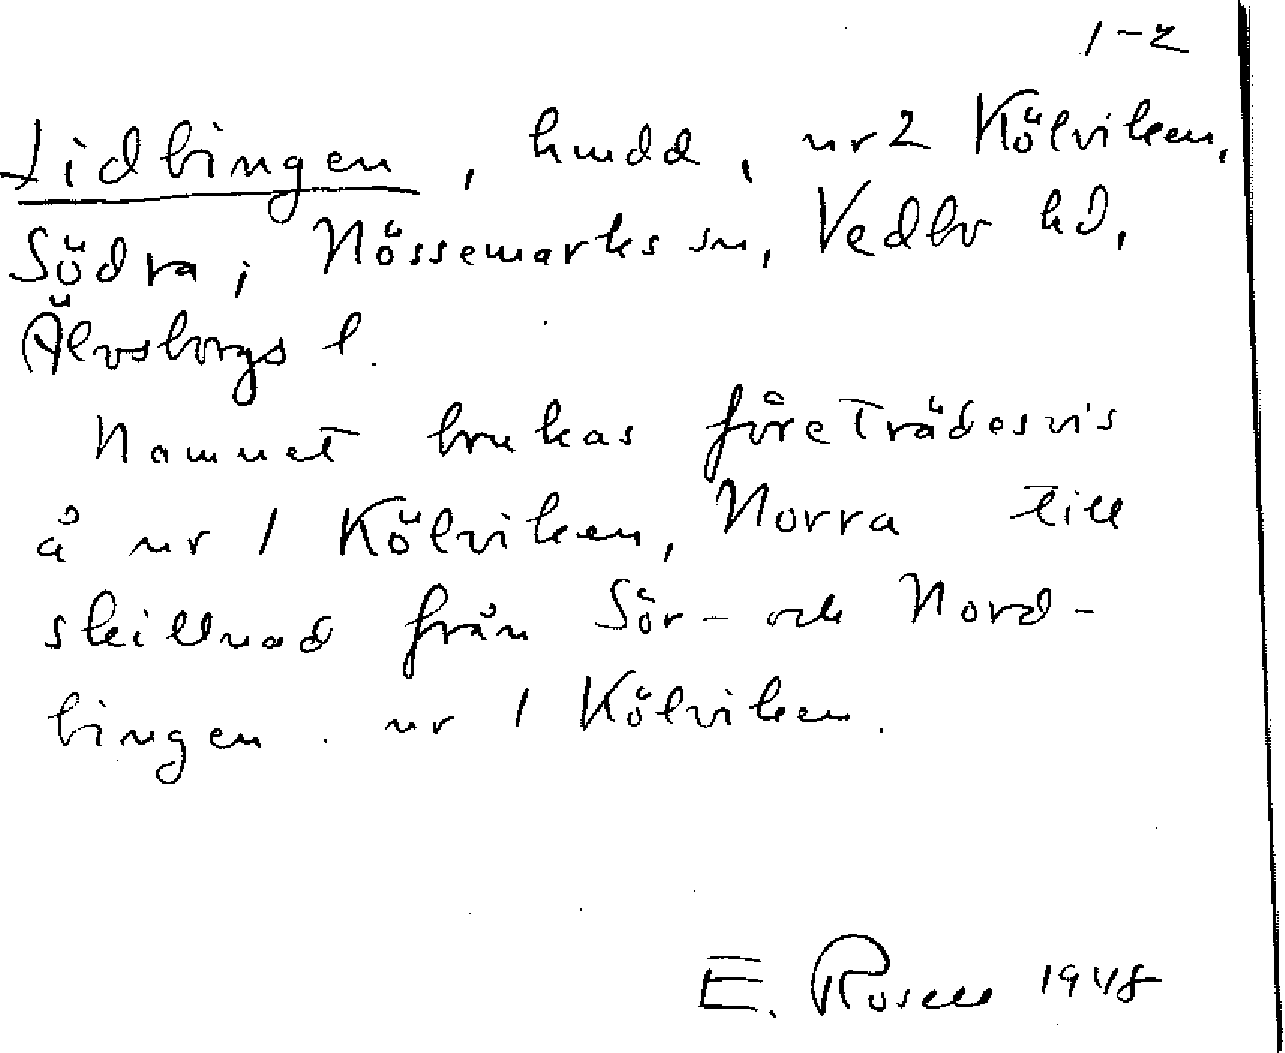 1-2
Lidbingen, hmdd, nr 2 Kölviken,
Södra, Nössemarks sn, Vedbo hd,
Älvsborgs l.
Namnet brukas företrädesvis
å nr 1 Kölviken, Norra till
skillnad från Sör- och Nord-
bingen. nr 1 Kölviken.
E. Rosell 1948